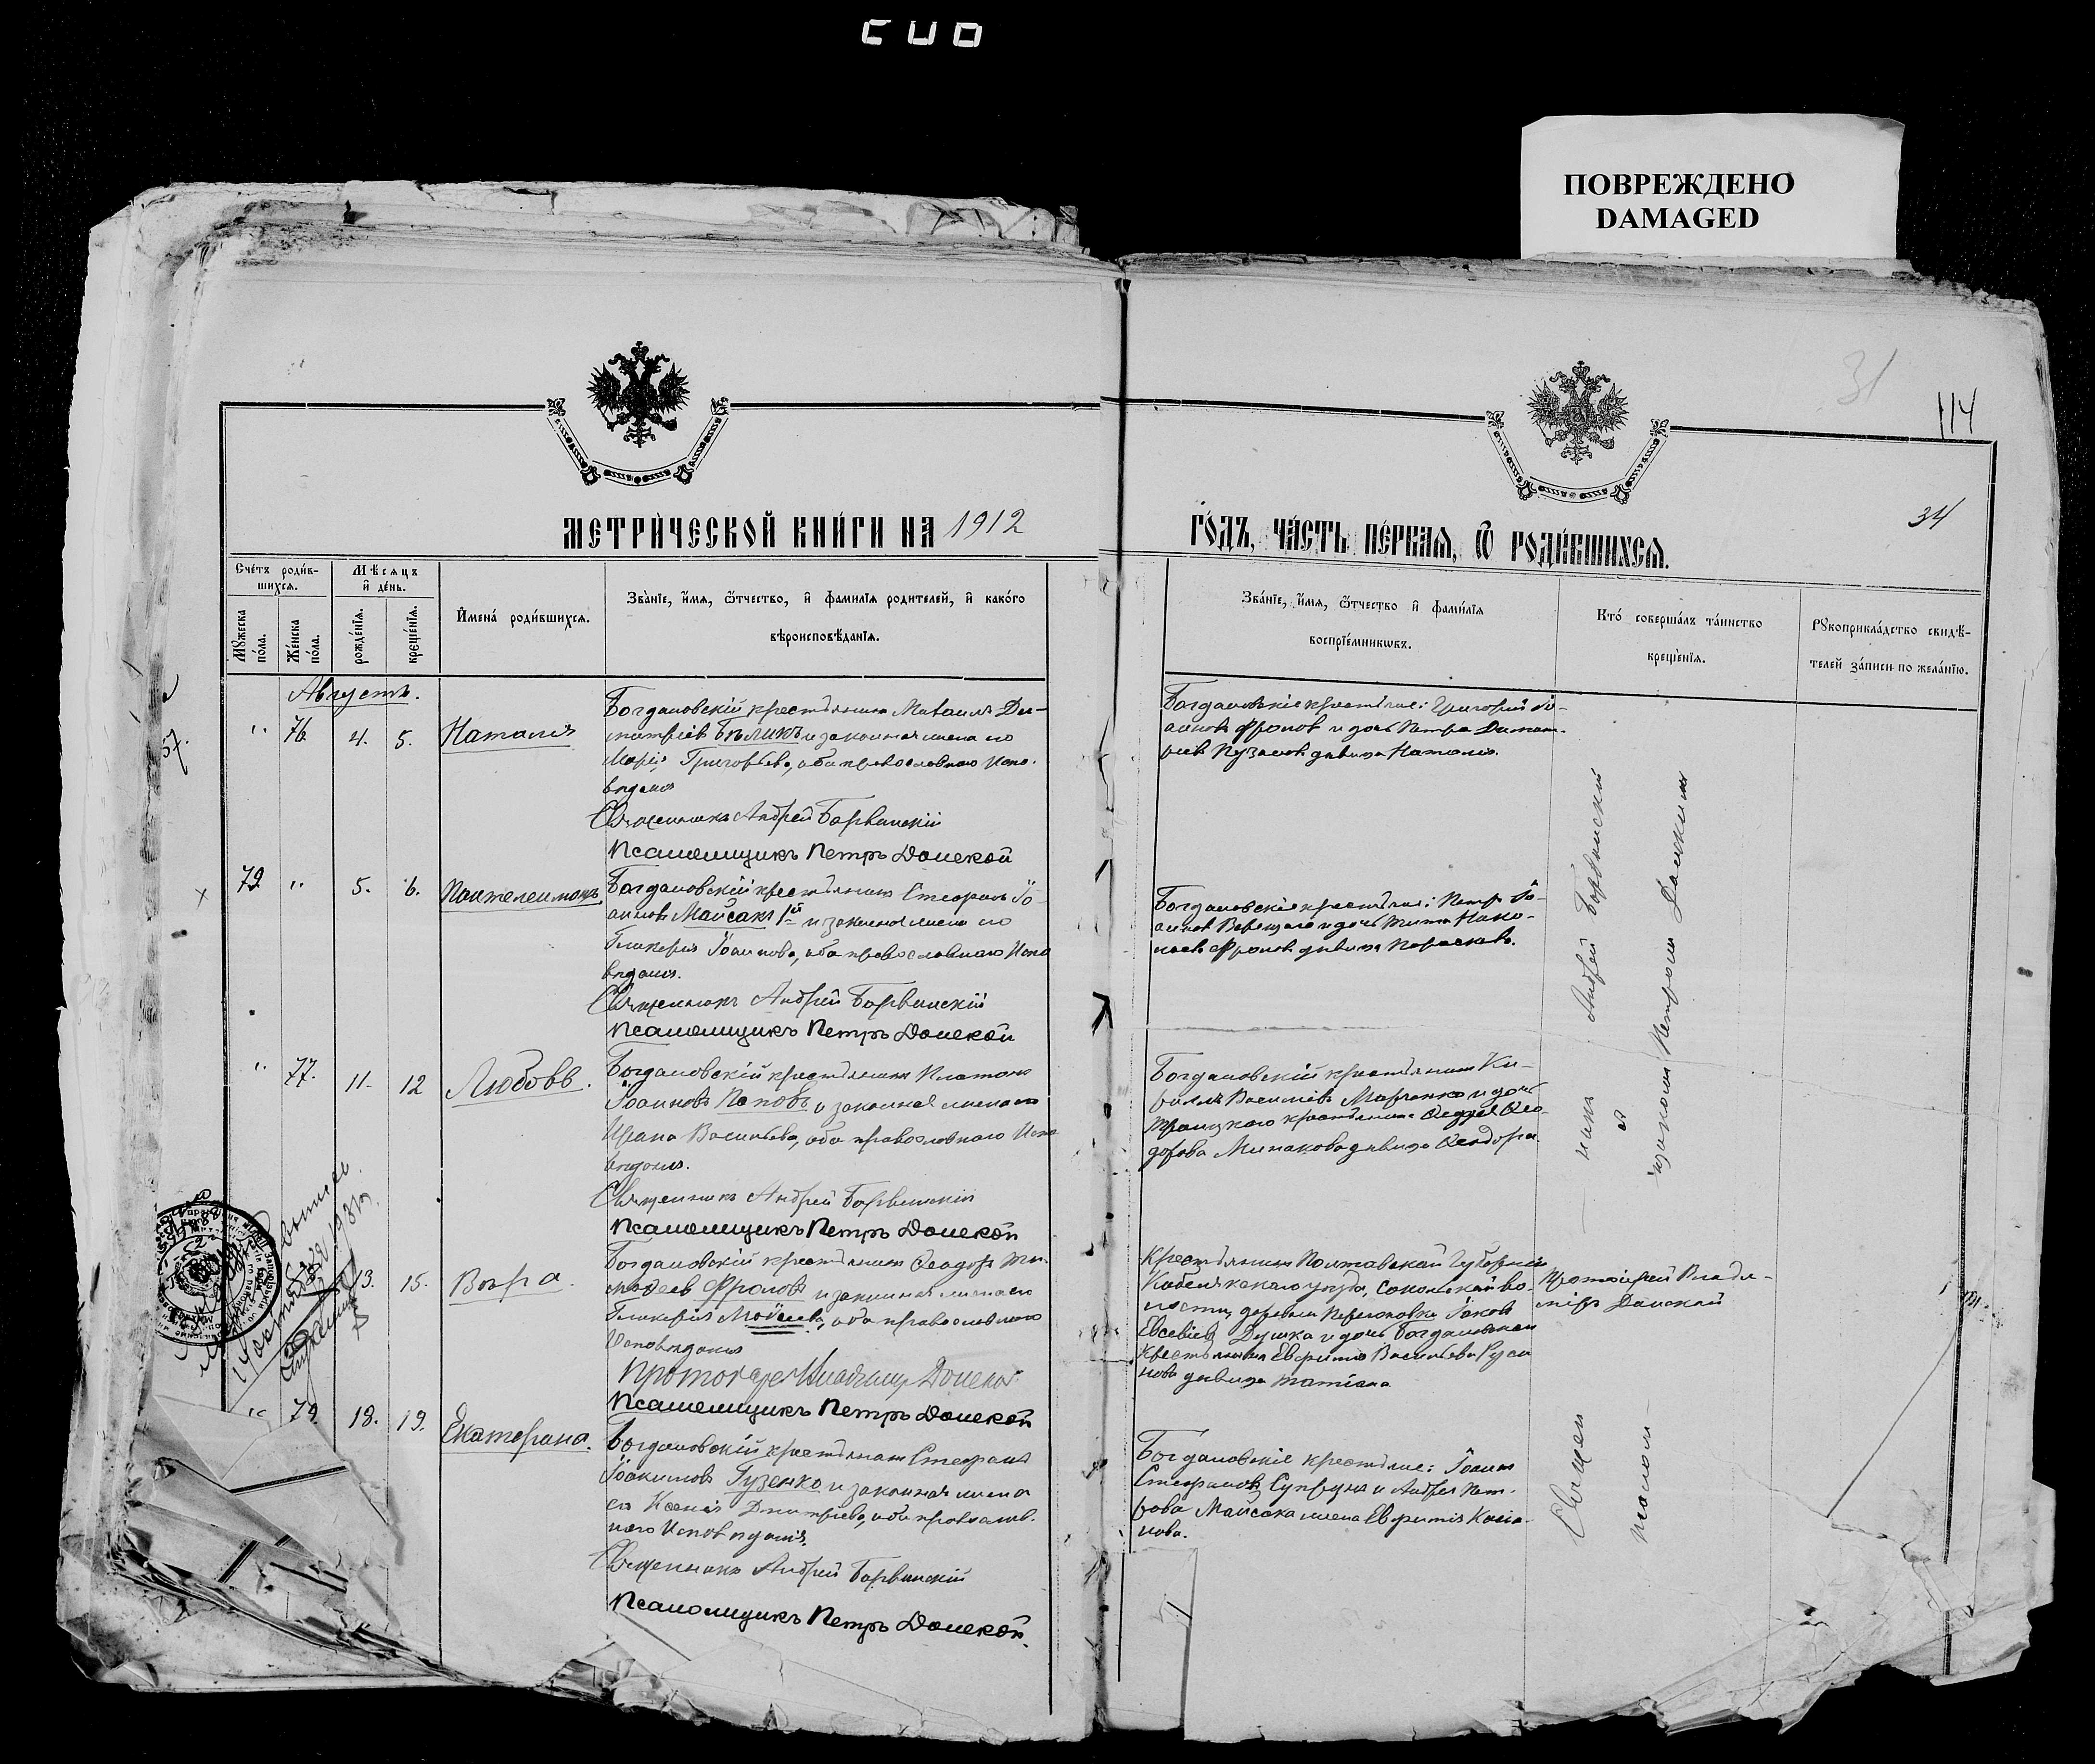 ПОВРЕЖДЕНО
DAMAGED
31
114
34
МЕТРИЧЕСКОЙ КНИГИ НА 1912
ГОДЪ, ЧАСТЬ ПЕРВАЯ, Ѿ РОДИВШИХСЯ.
Счетъ родив-
шихся.
Мѣсяцъ
и день.
Мужеска
пола.
Женска
пола.
рожденїя.
крещенїя.
Имена родившихся.
Званїе, имя, ѿчество, и фамилїя родителей, и какого
вѣроисповѣданїя.
Званїе, имя, ѿчество и фамилїя
воспрїемниковъ.
Кто совершалъ таинство
крещенїя.
Рукоприкладство свидѣ-
телей записи по желанїю.
Августъ.
" 76. 4. 5. Наталія
Богдановскій крестьянинъ Михаилъ Ди-
митріевъ Бѣликъ и законная жена его
Марія Григорьева, оба православнаго испо-
вѣданія
Священникъ Андрей Борвинскій
Псаломщикъ Петръ Донской
Богдановскіе крестьяне: Григорій Іо-
анновъ Фроловъ и дочь Петра Димит-
ріева дѣвица Наталія.
79 " 5. 6. Пантелеимонъ
Богдановскій крестьянинъ Стефанъ Іо-
анновъ Майсакъ 1й и законная жена его
Гликерія Іоаннова, оба православнаго испо
вѣданія.
Священникъ Андрей Борвинскій
Псаломщикъ Петръ Донской
Богдановскіе крестьяне: Петръ Іо-
анновъ и дочь Тита
Фролова дѣвица Параскева.
" 77. 11. 12 Любовь.
Богдановскій крестьянинъ Платонъ
Іоанновъ Поповъ и законная жена его
Ирина Васильева, оба православнаго испо
вѣданія.
Священникъ Андрей Борвинскій
Псаломщикъ Петръ Донской
Богдановскій крестьянинъ Ки-
риллъ Васильевъ Марченко и дочь
Троицкаго крестьянина Ѳеодора Ѳео-
дорова Минакова дѣвица Ѳеодора.
13. 15. Вѣра.
Богдановскій крестьянинъ Ѳеодоръ Ти-
моѳеевъ Фроловъ и законная жена его
Гликерія Моисеева, оба православнаго
исповѣданія
Протоіерей Владиміръ Донской
Псаломщикъ Петръ Донской
Крестьянинъ Полтавской губерніи
Кобелякскаго уѣзда, Сокольской во-
лости, деревни Іаковъ
Евсевіевъ Душка и дочь Богдановской
крестьянки Евфиміи Васильевой Руса
новой дѣвица Татіана
Протоіерей Влади-
міръ Донской
" 79. 18. 19. Екатерина.
Богдановскій крестьянинъ Стефанъ
Іоакимовъ Гузенко и законная жена
его Ксенія Дмитріева, оба православ-
наго исповѣданія.
Священникъ Андрей Борвинскій
Псаломщикъ Петръ Донской.
Богдановскіе крестьяне: Іоаннъ
Стефановъ Супрунъ и Андрея Пет-
рова Майсака жена Евфимія Касія-
нова.
Священ
никъ Андрей Борвинскій
съ
псалом-
щикомъ Петромъ Донскимъ